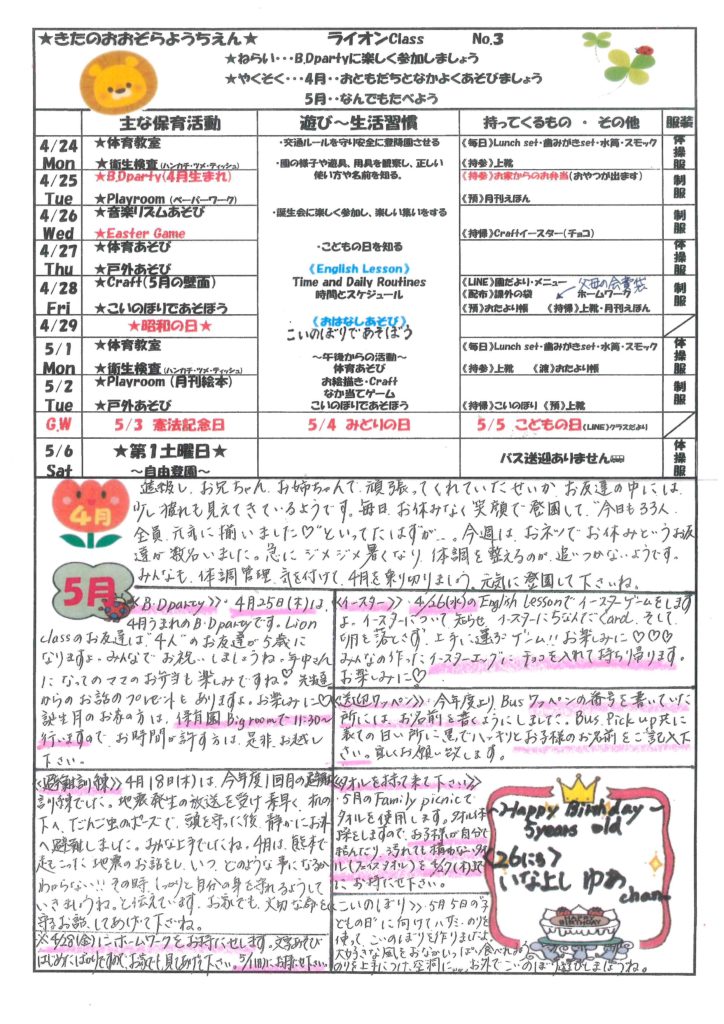 ★きたのおおぞらようちえん★ ライオンClass No.3
★ねらい・・・B.Dpartyに楽しく参加しましょう
★やくそく・・・4月・・おともだちとなかよくあそびましょう
5月・・なんでもたべよう
主な保育活動 遊び～生活習慣 持ってくるもの ・ その他 服装
4/24 Mon
★体育教室
★衛生検査(ハンカチ・ツメ・ティッシュ)
・交通ルールを守り安全に登降園させる
・園の様子や遊具、用具を観察し、正しい
《毎日》Lunch set・歯みがきset・水筒・スモック
《持参》上靴
体操服
4/25 Tue
★B.Dparty(4月生まれ)
★Playroom (ペーパーワーク)
使い方や名前を知る。
《持参》お家からのお弁当(おやつが出ます)
《預》月刊えほん
制服
4/26 Wed
★音楽リズムあそび
★Easter Game
・誕生会に楽しく参加し、楽しい集いをする
《持帰》Craftイースター(チョコ)
制服
4/27 Thu
★体育あそび
★戸外あそび
・こどもの日を知る
《English Lesson》
体操服
4/28 Fri
★Craft(5月の壁面)
★こいのぼりであそぼう
Time and Daily Routines
時間とスケジュール
《LINE》園だより・メニュー 父母の会費袋
《配布》課外の袋 ホームワーク
《預》おたより帳 《持帰》上靴・月刊えほん
制服
4/29 ★昭和の日★
《おはなしあそび》
こいのぼりであそぼう
5/1 Mon
★体育教室
★衛生検査(ハンカチ・ツメ・ティッシュ)
～午後からの活動～
体育あそび
《毎日》Lunch set・歯みがきset・水筒・スモック
《持参》上靴 《渡》おたより帳
体操服
5/2 Tue
★Playroom (月刊絵本)
★戸外あそび
お絵描き・Craft
なか当てゲーム
こいのぼりであそぼう
《持帰》こいのぼり 《預》上靴
制服
G.W 5/3 憲法記念日 5/4 みどりの日 5/5 こどもの日(LINE)クラスだより
5/6 Sat
★第1土曜日★
～自由登園～
バス送迎ありません
体操服
4月
進級し、お兄ちゃん、お姉ちゃんで、頑張ってくれていたせいか お友達の中には、
少し疲れも見えてきているようです。毎日、お休みなく笑顔で登園して、"今日も33人、
全員、元気に揃いました♡"といってたはずが…。今週は、おネツでお休みというお友
達が数名いました。急に ジメジメ暑くなり、体調を整えるのが、追いつかないようです。
みんなも、体調管理、気を付けて、4月を乗り切りましょう。元気に登園して下さいね。
5月
《B・Dparty》 4月25日(木)は、
4月うまれのB・Dpartyです。Lion
classのお友達は"4人"のお友達が5歳に
なりますよ。みんなでお祝いしましょうね。年中さん
になってのママのお弁当も楽しみですね♡先生達
からのお話のプレゼントも ありますよ。お楽しみに♡
誕生月のお家の方は、保育園Big roomで11:30～
行いますので、お時間が許す方は、是非、お越し
下さい。
《イースター》 4/26(水)のEnglish Lessonでイースターゲームをします
よ。イースターについて知らせ、イースターにちなんだCard、そして、
卵を落とさず、上手に運ぶゲーム!! お楽しみに♡♡♡
みんなの作ったイースターエッグに チョコを入れて持ち帰ります。
お楽しみに♡
《送迎ワッペン》 今年度より、Bus ワッペンの番号を書いていた
所には、お名前を書くようにしました。Bus、Pick up共に
表の白い所に黒でハッキリとお子様のお名前をご記入下
さい。宜しくお願い致します。
《避難訓練》 4月18日(木)は、今年度1回目の避難
訓練でした。地震発生の放送を受け素早く、机の
下へ、だんご虫のポーズで、頭を守った後、静かにお外
へ避難しました。みんな上手でしたね。4月は、熊本で
起こった地震のお話をし、いつ、どのような事になるか
わからない!! その時、しっかりと自分の身を守れるようして
いきましょうね。と伝えています。お家でも、大切な命を
守るお話、してあげて下さいね。
※4/28(金)にホームワークをお持たせします。
《タオルを持って来て下さい》
5月のFamily picnicで
タオルを使用します。
《こいのぼり》 5月5日の子
どもの日に向けてハサミ・のりを
使って、こいのぼりを作りましたよ。
Happy Birthday
5years old
《26にち》
いなよし ゆあ
chan
HAPPY BIRTHDAY